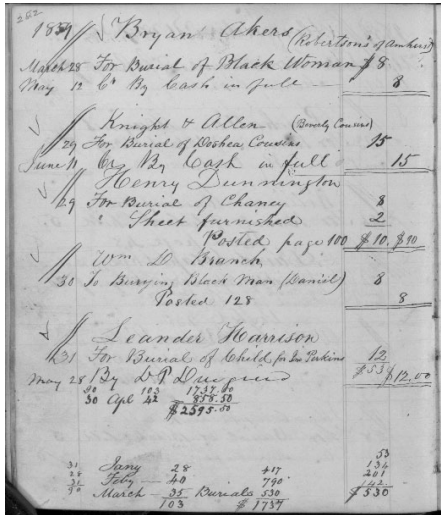 252
1859 Bryan Akers (Robertson's of Amherst)
March 28 For Burial of Black Woman $ 8
May 12 Cr By Cash in full — 8
Knight & Allen (Beverly Cousins)
29 For Burial of Doshea Cousins 15
June 11 Crs By Cash in full 15
Henry Dunnington
29 For Burial of Chaney 8
" Sheet furnished 2
Posted page 100 $10. $90
Wm D Branch
30 To Burying Black Man (Daniel) 8
Posted 128 8
Leander Harrison
31 For Burial of Child for Perkins 12
May 28 By D. P. Duiguid $53 $12,00
90 103 1737.00
30 Apl 42 858.50
$2595.50
53
31 Jany 28 417 134
28 Feby — 40 790 201
31 March — 35 Burials 530 142
90 103 $ 1737 $530